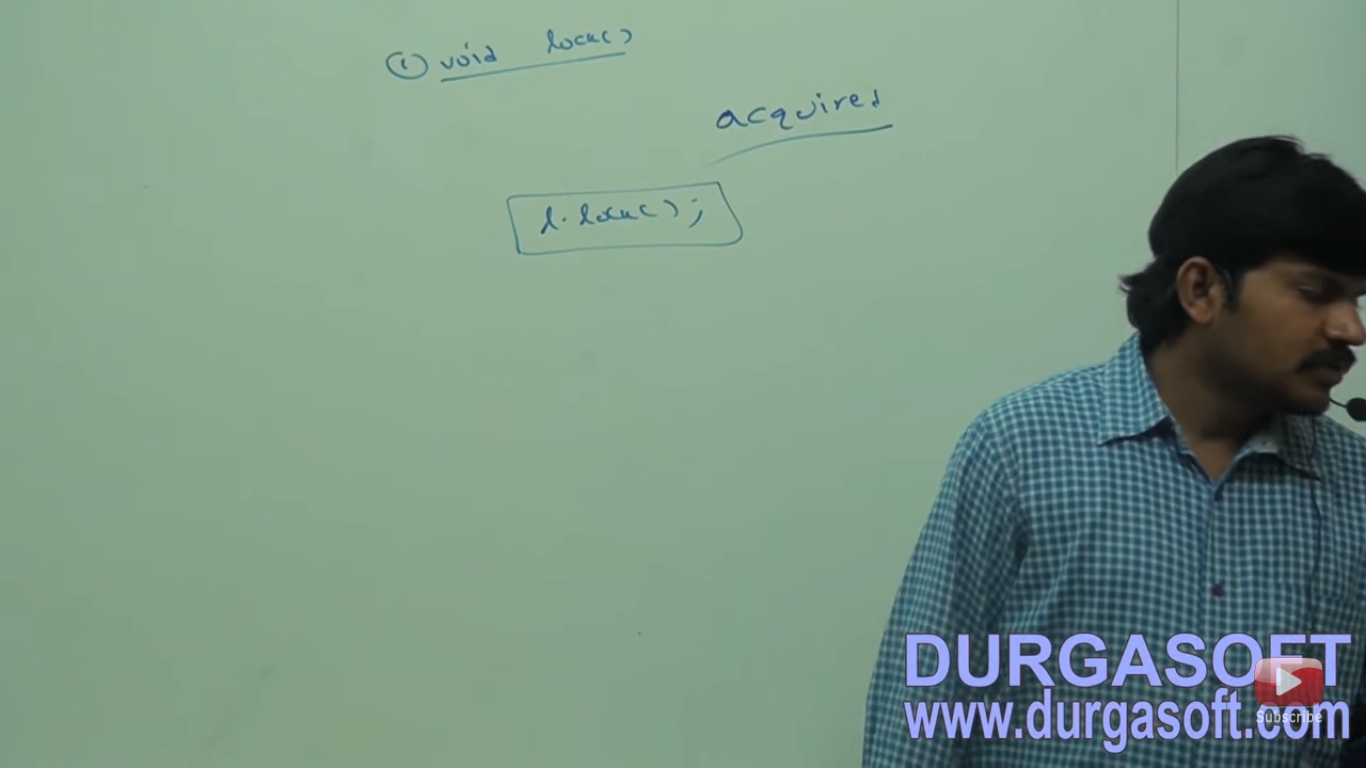 ① void lock()
acquired
l. lock();
DURGASOFT
www.durgasoft.com
Subscribe